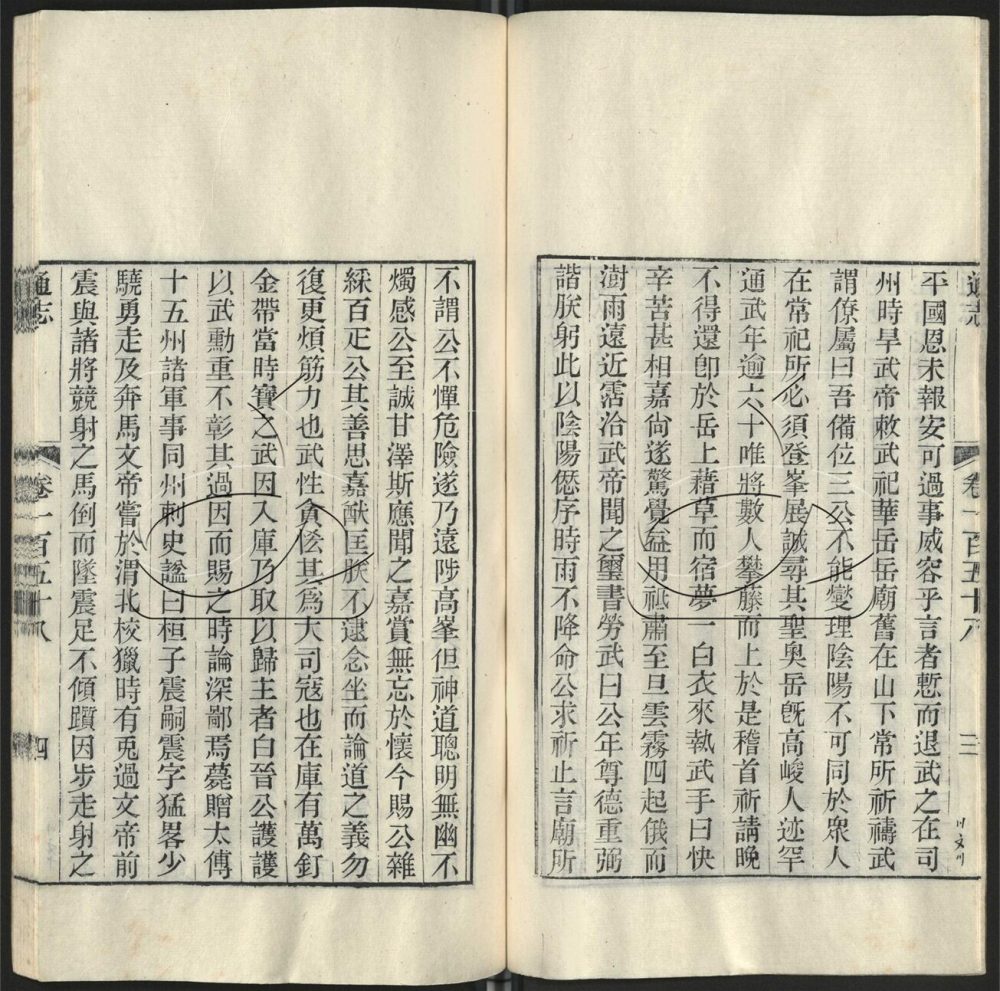 通志
卷一百五十八
三
平國恩未報安可過事威容乎言者慙而退武之在司
州時旱武帝敕武祀華岳岳廟舊在山下常所祈禱武
謂僚屬曰吾備位三公不能燮理陰陽不可同於衆人
在常祀所必須登峯展誠尋其聖奧岳旣高峻人迹罕
通武年逾六十唯將數人攀藤而上於是稽首祈請晚
不得還卽於岳上藉草而宿夢一白衣來執武手曰快
辛苦甚相嘉尙遂驚覺益用祗肅至旦雲霧四起俄而
澍雨遠近霑洽武帝聞之璽書勞武曰公年尊德重弼
諧朕躬此以陰陽愆序時雨不降命公求祈止言廟所
不謂公不憚危險遂乃遠陟高峯但神道聰明無幽不
燭感公至誠甘澤斯應聞之嘉賞無忘於懷今賜公雜
綵百疋公其善思嘉猷匡朕不逮念坐而論道之義勿
復更煩筋力也武性貪恡其爲大司寇也在庫有萬釘
金帶當時寶之武因入庫乃取以歸主者白晉公護護
以武勳重不彰其過因而賜之時論深鄙焉薨贈太傅
十五州諸軍事同州刺史諡曰桓子震嗣震字猛畧少
驍勇走及奔馬文帝嘗於渭北校獵時有兎過文帝前
震與諸將競射之馬倒而墜震足不傾躓因步走射之
通志
卷一百五十八
四